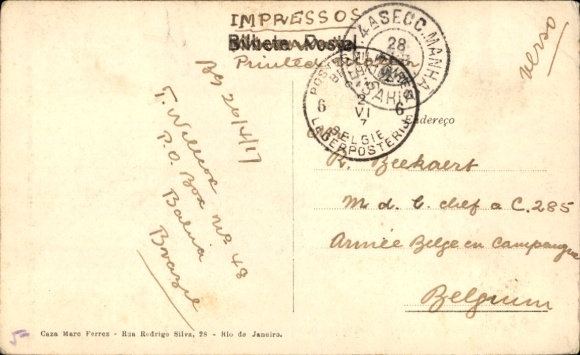 IMPRESSOS
Bilhete Postal
Printed
verso
4A SECC. MANHÃ
28
BAHIA
POSTES MILITAIRES
BELGIË
LEGERPOSTERIJ
6 6
2
VI
7
Endereço
R. Beekaert
M d. C. chef a C. 285
Armée Belge en Campagne
Belgium
Ba 26/4/17
T. Willcox
P.O. Box No 48
Bahia
Brazil
5
Caza Marc Ferrez - Rua Rodrigo Silva, 28 - Rio de Janeiro.